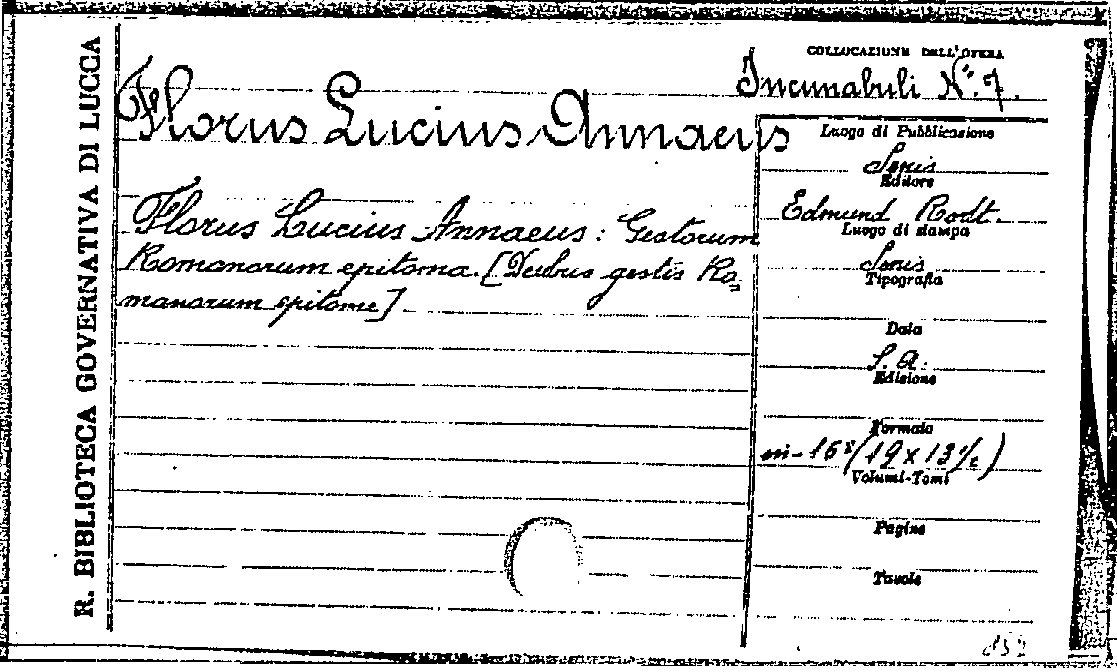 R. BIBLIOTECA GOVERNATIVA DI LUCCA
COLLOCAZIONE DELL'OPERA
Incunabuli N°. 7.
Florus Lucius Annaeus
Florus Lucius Annaeus: Gestorum
Romanorum epitoma. [De gestis Ro=
manorum epitome]
Luogo di Pubblicazione
Senis
Editore
Edmund Rodt.
Luogo di stampa
Senis
Tipografia
Data
S. A.
Edizione
Formato
in-16° (19 x 13 1/2)
Volumi-Tomi
Pagine
Tavole